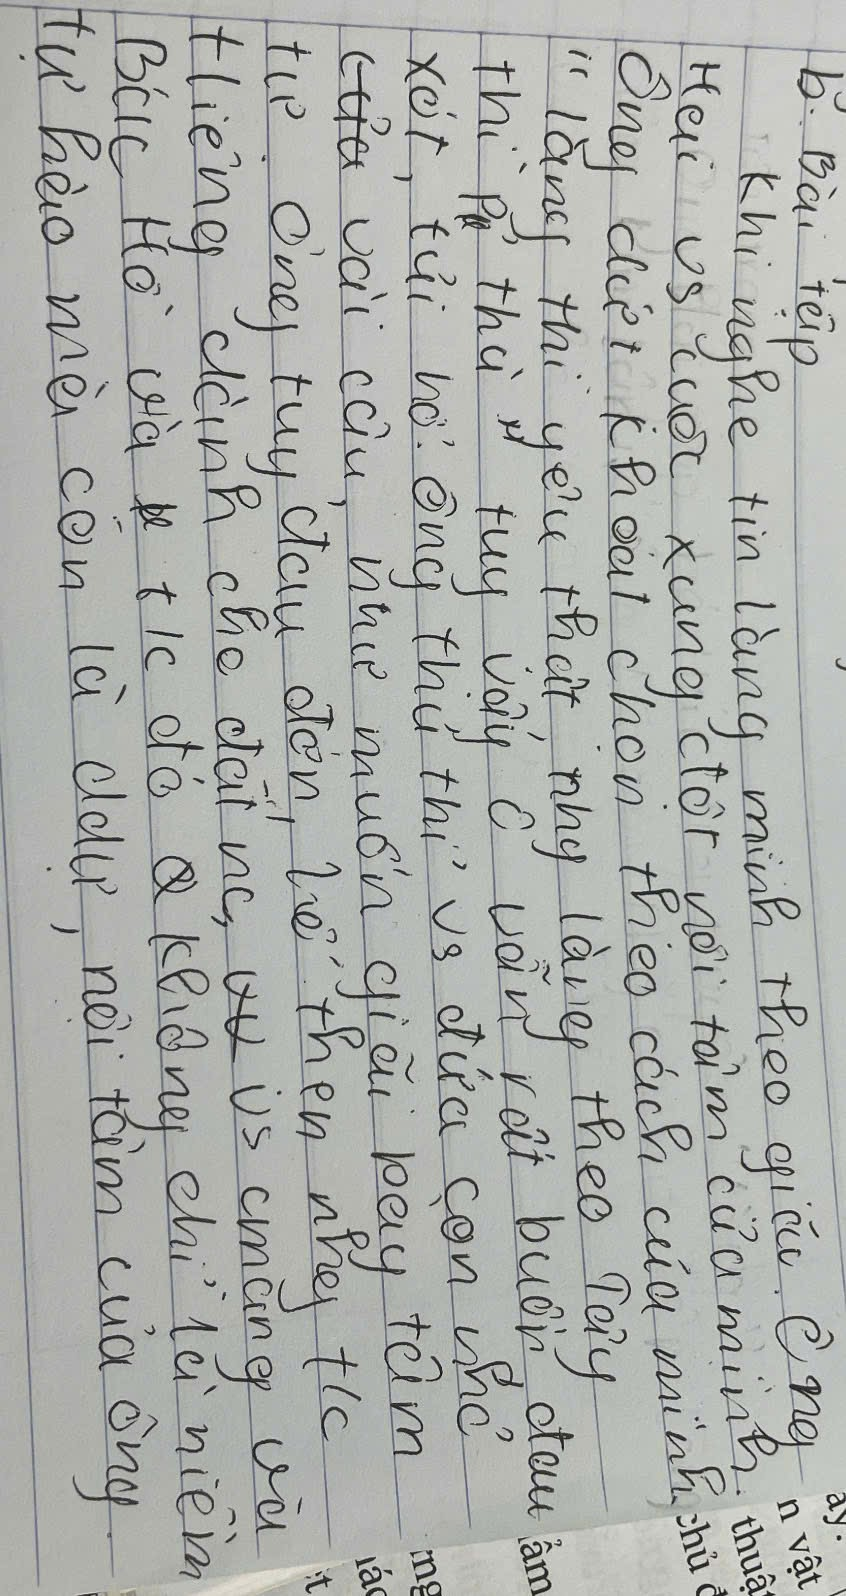 b. Bài tập
Khi nghe tin làng mình theo giặc. Ông
Hai vs cuộc xung đột nội tâm của mình.
Ông dứt khoát chọn theo cách của mình
"làng thì yêu thật, nhg làng theo Tây
thì phải thù" tuy vậy ô vẫn rất buồn đau
xót, tủi hổ. ông thủ thỉ vs đứa con nhỏ
vài câu, như muốn giãi bày tâm
tư. Ông tuy đau đớn, hổ thẹn nhg t/c
thiêng dành cho đất nc, vs cmạng và
Bác Hồ và t/c đó không chỉ là niềm
tự hào mà còn là ddự, nội tâm của ông
ay.
n vật
thuậ
chủ đ
âm
mg
các
t